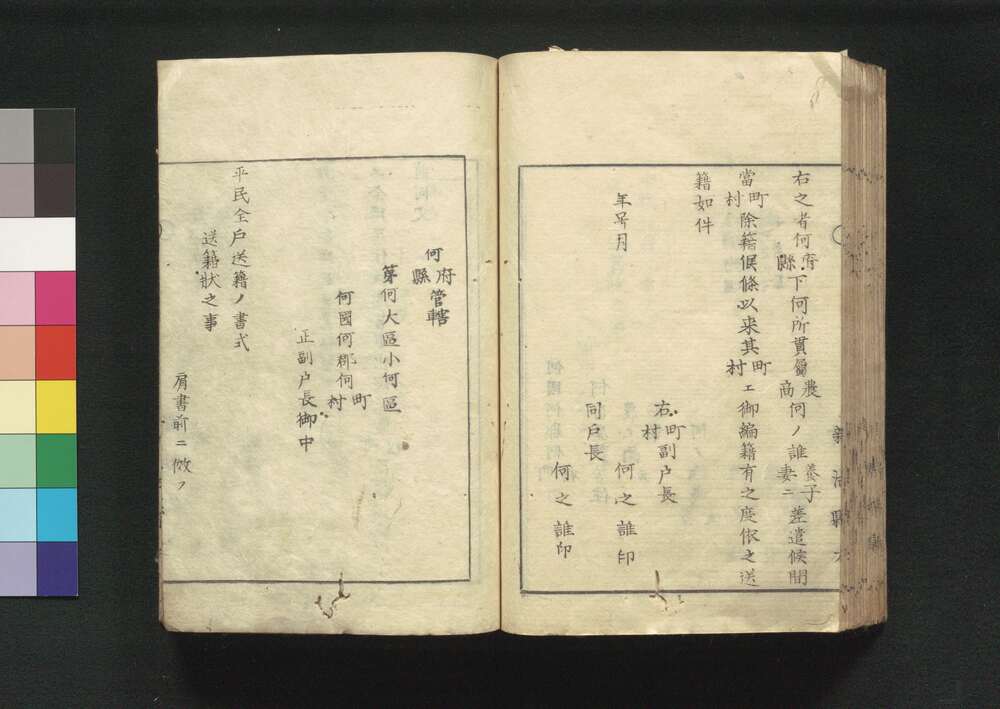 右之者何府縣下何所貫屬農商何ノ誰養子妻ニ差遣候間
當町村除籍候條以来其町村エ御編籍有之度依之送
籍如件
年号月
右町村副戸長
何之誰印
同戸長
何之誰印
何府縣管轄
第何大區小何區
何國何郡何町村
正副戸長御中
平民全戸送籍ノ書式
送籍状之事
肩書前ニ倣フ